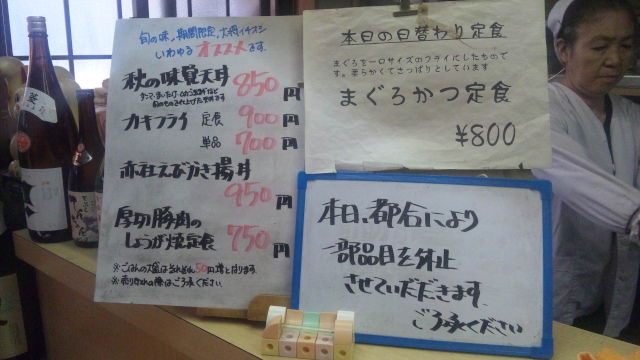 旬の味、期間限定、大将イチオシ
いわゆるオススメです。
秋の味覚天丼 850円
カキフライ 定食 900円
単品 700円
赤社えびかき揚丼
950円
厚切豚肉の
しょうが焼定食 750円
※ごはんの大盛はそれぞれ50円増となります。
※売り切れの際はご了承ください。
本日の日替わり定食
まぐろを一口サイズのフライにしたもので
す。柔らかくてさっぱりとしています
まぐろかつ定食
¥800
本日、都合により
一部品目を休止
させていただきます。
ご了承ください